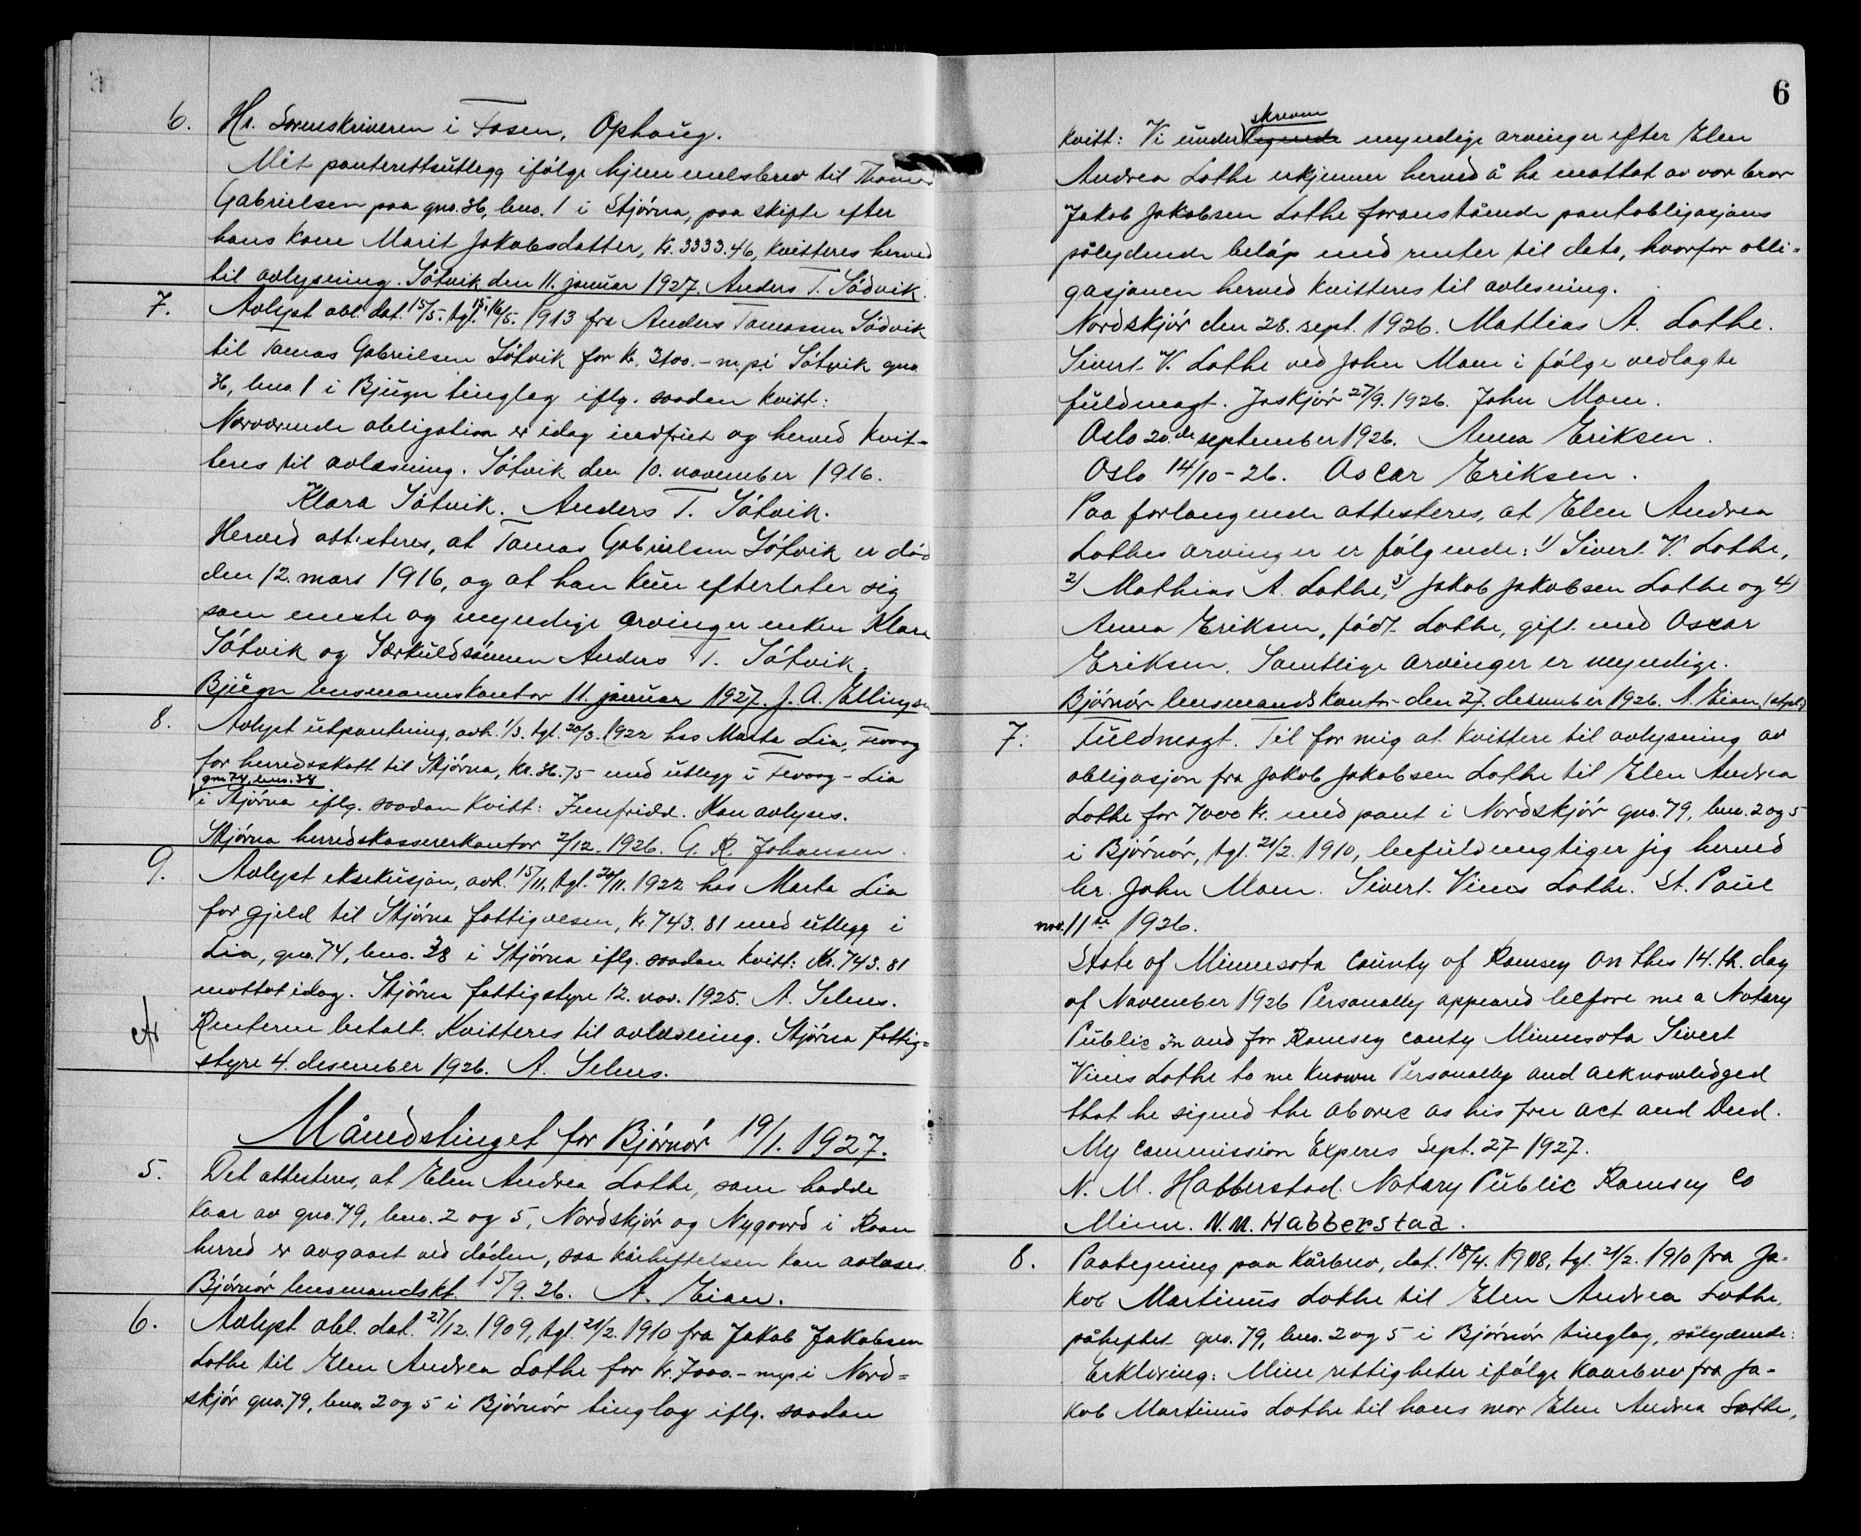 6. Hr. Sorenskriveren i Fosen, Ophaug.
Mit panterettsutlegg ifölge hjemmelsbrev til Thomas
Gabrielsen paa gno. 36, bno. 1 i Stjörna, paa skifte efter
hans kone Marit Jakobsdatter, kr. 3333.46, kvitteres herved
til avlysning. Sötvik den 11. januar 1927. Anders T. Södvik.
7. Avlyst obl. dat. 15/5. tgl. 15-16/5. 1913 fra Anders Tomassen Södvik
til Tomas Gabrielsen Sötvik for kr. 3100.- m.p.i Sötvik gno.
36, bno. 1 i Bjugn tinglag iflg. saadan kvitt:
Nærværende obligation er idag indfriet og herved kvit-
teres til avlæsning. Sötvik den 10. november 1916.
Klara Sötvik. Anders T. Sötvik.
Herved attesteres, at Tomas Gabrielsen Sötvik er död
den 12. mars 1916, og at han kun efterlater sig
som eneste og myndige arvinger enken Klara
Sötvik og Særkuldsönnen Anders T. Sötvik.
Bjugn lensmannskontor 11. januar 1927. J. A. Ellingsen
8. Avlyst utpantning, avh. 1/3. tgl. 20/3. 1922 hos Marta Lia, Fevaag
for herredsskatt til Stjörna, kr. 36.75 med utlegg i Fevaag - Lia
gno 74, bno. 34
i Stjörna iflg. saadan kvitt: Innfridd. Kan avlyses.
Stjörna herredskassererkontor 2/12. 1926. G. R. Johansen.
9. Avlyst eksekusjon, avh. 15/11, tgl. 20/11. 1922 hos Marta Lia
for gjeld til Stjörna fattigvesen, kr. 743.81 med utlegg i
Lia, gno. 74, bno. 38 i Stjörna iflg. saadan kvitt: Kr. 743.81
mottat idag. Stjörna fattigstyre 12. nov. 1925. A. Selnes.
Renterne betalt. Kvitteres til avlæsning. Stjörna fattig-
styre 4. desember 1926. A. Selnes.
Månedstinget for Björnör 19/1. 1927.
5. Det attesteres, at Elen Andrea Lothe, som hadde
kaar av gno. 79, bno. 2 og 5, Nordskjör og Nygaard i Roan
herred er avgaaet ved döden, saa kårheftelsen kan avlæses.
Björnör lensmandskt. 15/9. 26. A. Eian.
6. Avlyst obl. dat. 27/12. 1909, tgl. 21/2. 1910 fra Jakob Jakobsen
Lothe til Elen Andrea Lothe for kr. 7000.- m.p.i Nord-
skjör gno. 79, bno. 2 og 5 i Björnör tinglag iflg. saadan
6
skrevne
kvitt: Vi undertegnede myndige arvinger efter Elen
Andrea Lothe erkjenner herved å ha mottat av vor bror
Jakob Jakobsen Lothe foranstående pantobligasjons
pålydende belöp med renter til dato, hvorfor obli-
gasjonen herved kvitteres til avlesning.
Nordskjör den 28. sept. 1926. Mattias A. Lothe.
Sivert V. Lothe ved John Moen i fölge vedlagte
fuldmagt. Joskjör 27/9. 1926. John Moen.
Oslo 20.de september 1926. Anna Eriksen.
Oslo 14/10-26. Oscar Eriksen.
Paa forlangende attesteres, at Elen Andrea
Lothes arvinger er fölgende: 1) Sivert V. Lothe,
2) Mathias A. Lothe, 3) Jakob Jakobsen Lothe og 4)
Anna Eriksen, född Lothe, gift med Oscar
Eriksen. Samtlige arvinger er myndige.
Björnör lensmandskontor den 27. desember 1926. A. Eian
7. Fuldmagt. Til for mig at kvittere til avlysning av
obligasjon fra Jakob Jakobsen Lothe til Elen Andrea
Lothe for 7000 kr. med pant i Nordskjör gno. 79, bno. 2 og 5
i Björnör, tgl. 21/2. 1910, befuldmegtiger jeg herved
hr. John Moen. Sivert Vinus Lothe. St. Paul
nov. 11te 1926.
State of Minnesota County of Ramsey On thes 14.th. day
of November 1926 Personally appeared belfore me a Notary
Public in and for Ramsey couty Minnesota Sivert
Vinus Lothe to me known Personally and acknowledged
that he signed the above as his free act and Deed.
My Commission Experes Sept. 27 1927.
N. M. Habberstad. Notary Public Ramsey Co
Minn. N. M. Habberstad.
8. Paategning paa kårbrev, dat. 18/4. 1908, tgl. 21/2. 1910 fra Ja-
kob Martinus Lothe til Elen Andrea Lothe,
påheftet gno. 79, bno. 2 og 5 i Björnör tinglag, sålydende:
Erklæring: Mine rettigheter ifölge kaarbrev fra Ja-
kob Martinus Lothe til hans mor Elen Andrea Lothe,